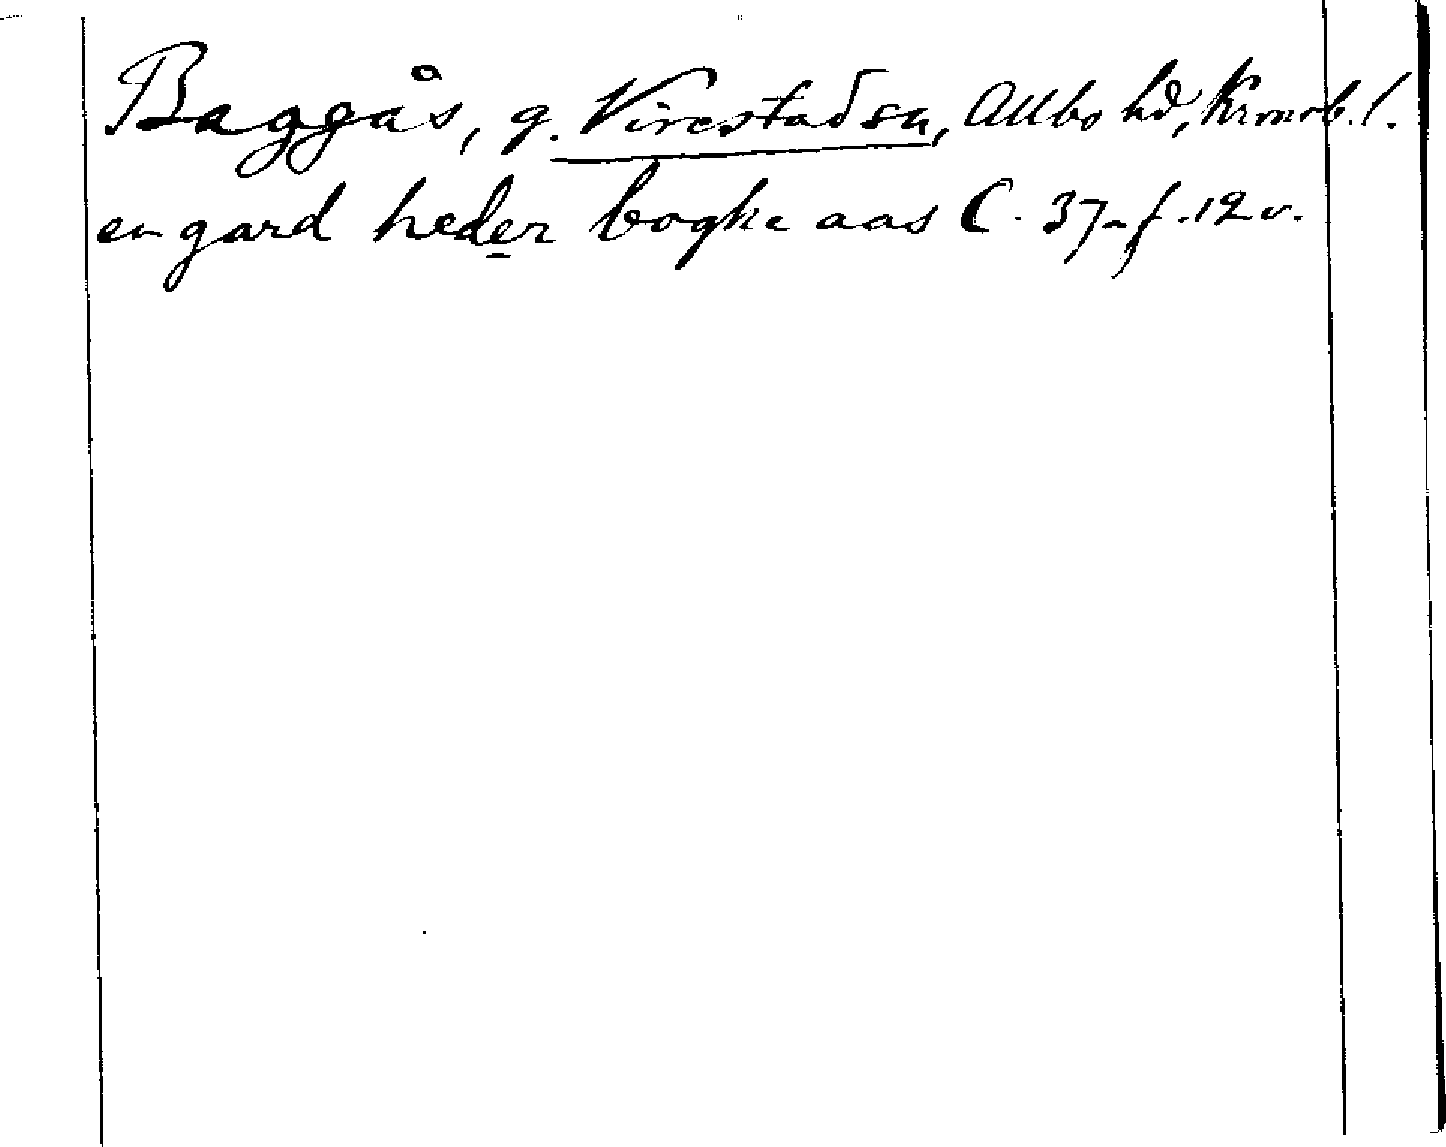 Baggås, g. Virestad sn, Allbo hd, Kronob. l.
en gard heder bogke aas C. 37. f. 12 v.